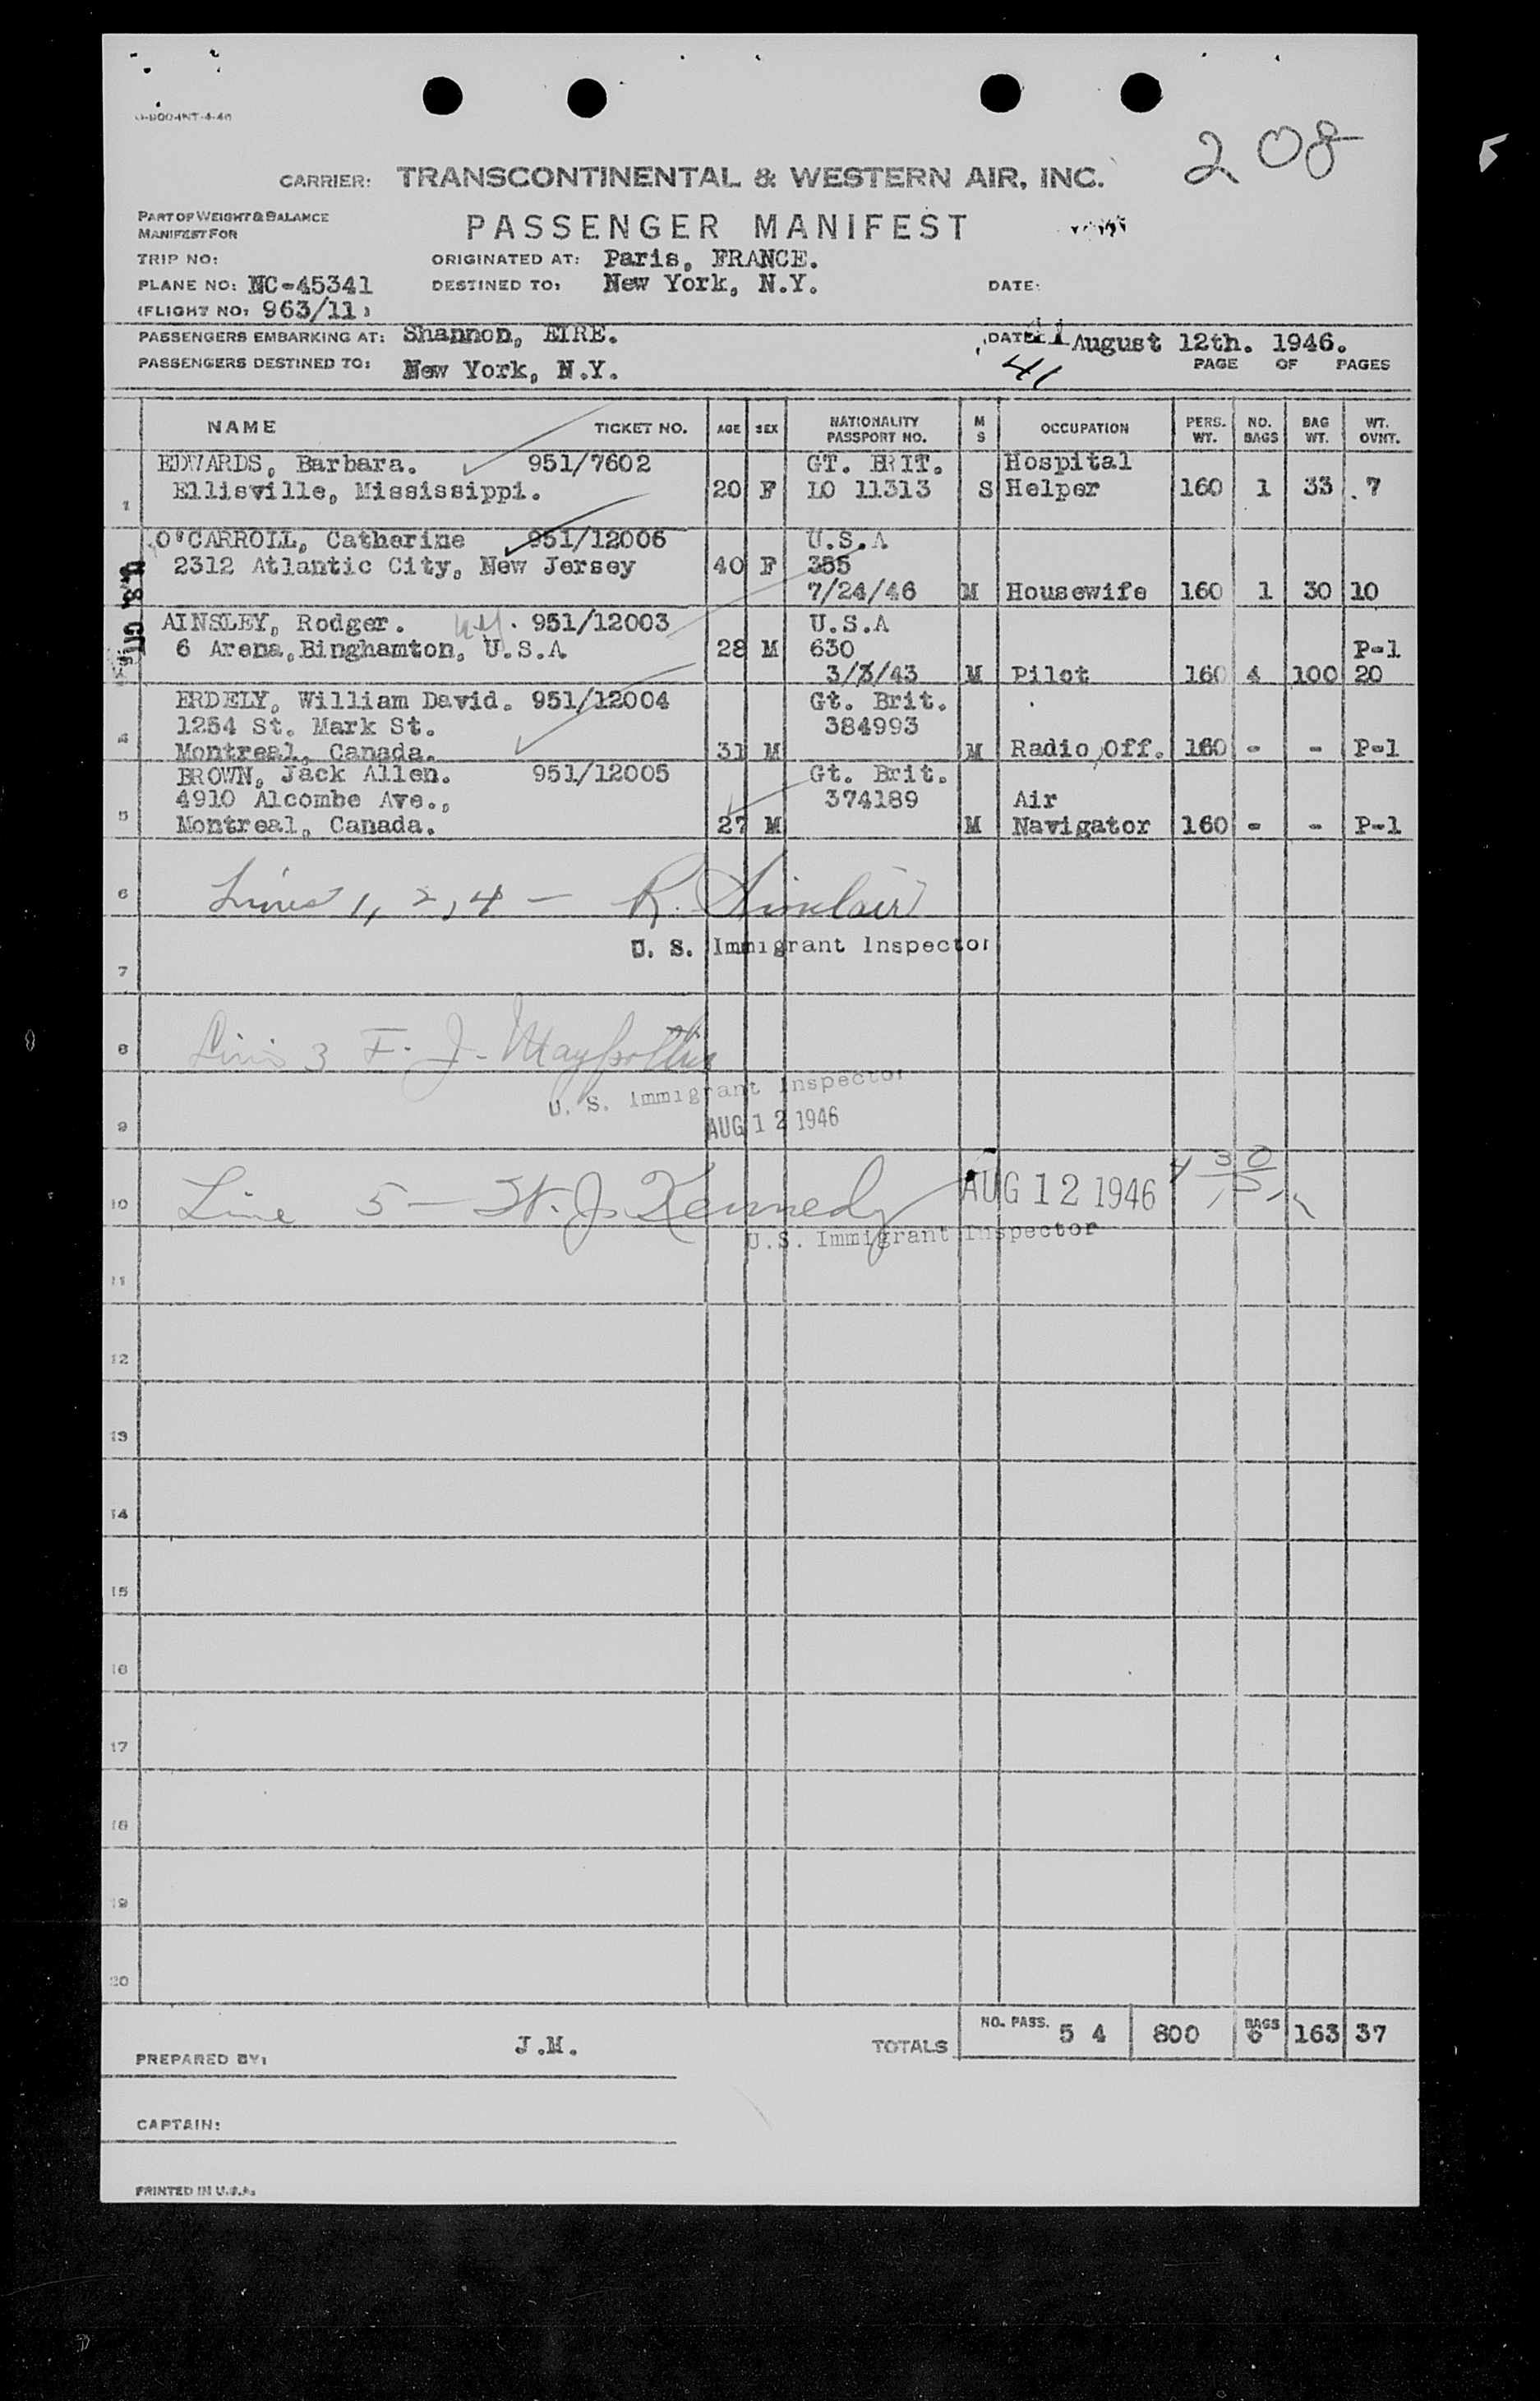 208
CARRIER: TRANSCONTINENTAL & WESTERN AIR, INC.
PART OF WEIGHT & BALANCE
MANIFEST FOR
PASSENGER MANIFEST
TRIP NO:
ORIGINATED AT: Paris, FRANCE.
PLANE NO: NC-45341
DESTINED TO: New York, N.Y.
DATE:
(FLIGHT NO: 963/11)
PASSENGERS EMBARKING AT: Shannon, EIRE.
DATE: August 12th. 1946.
PASSENGERS DESTINED TO: New York, N.Y.
41
PAGE OF PAGES
NAME TICKET NO. AGE SEX NATIONALITY PASSPORT NO. M S OCCUPATION PERS. WT. NO. BAGS BAG WT. WT. OVHT.
EDWARDS, Barbara. 951/7602 GT. BRIT. Hospital
1 Ellisville, Mississippi. 20 F LO 11313 S Helper 160 1 33 .7
O'CARROLL, Catherine 951/12006 U.S.A
2312 Atlantic City, New Jersey 40 F 355
7/24/46 M Housewife 160 1 30 10
AINSLEY, Rodger. 951/12003 U.S.A
6 Arena, Binghamton, U.S.A 28 M 630 P-1
3/3/43 M Pilot 160 4 100 20
ERDELY, William David. 951/12004 Gt. Brit.
1254 St. Mark St. 384993
4 Montreal, Canada. 31 M M Radio Off. 160 - - P-1
BROWN, Jack Allen. 951/12005 Gt. Brit.
4910 Alcombe Ave., 374189 Air
5 Montreal, Canada. 27 M M Navigator 160 - - P-1
6 Lines 1, 2, 4 - R. Sinclair
U. S. Immigrant Inspector
7
8 Line 3 F. J.
U. S. Immigrant Inspector
9 AUG 12 1946
10 Line 5 - W. J. Kennedy AUG 12 1946
U.S. Immigrant Inspector
11
12
13
14
15
16
17
18
19
20
PREPARED BY: J.M. TOTALS NO. PASS. 5 4 800 BAGS 6 163 37
CAPTAIN:
PRINTED IN U.S.A.